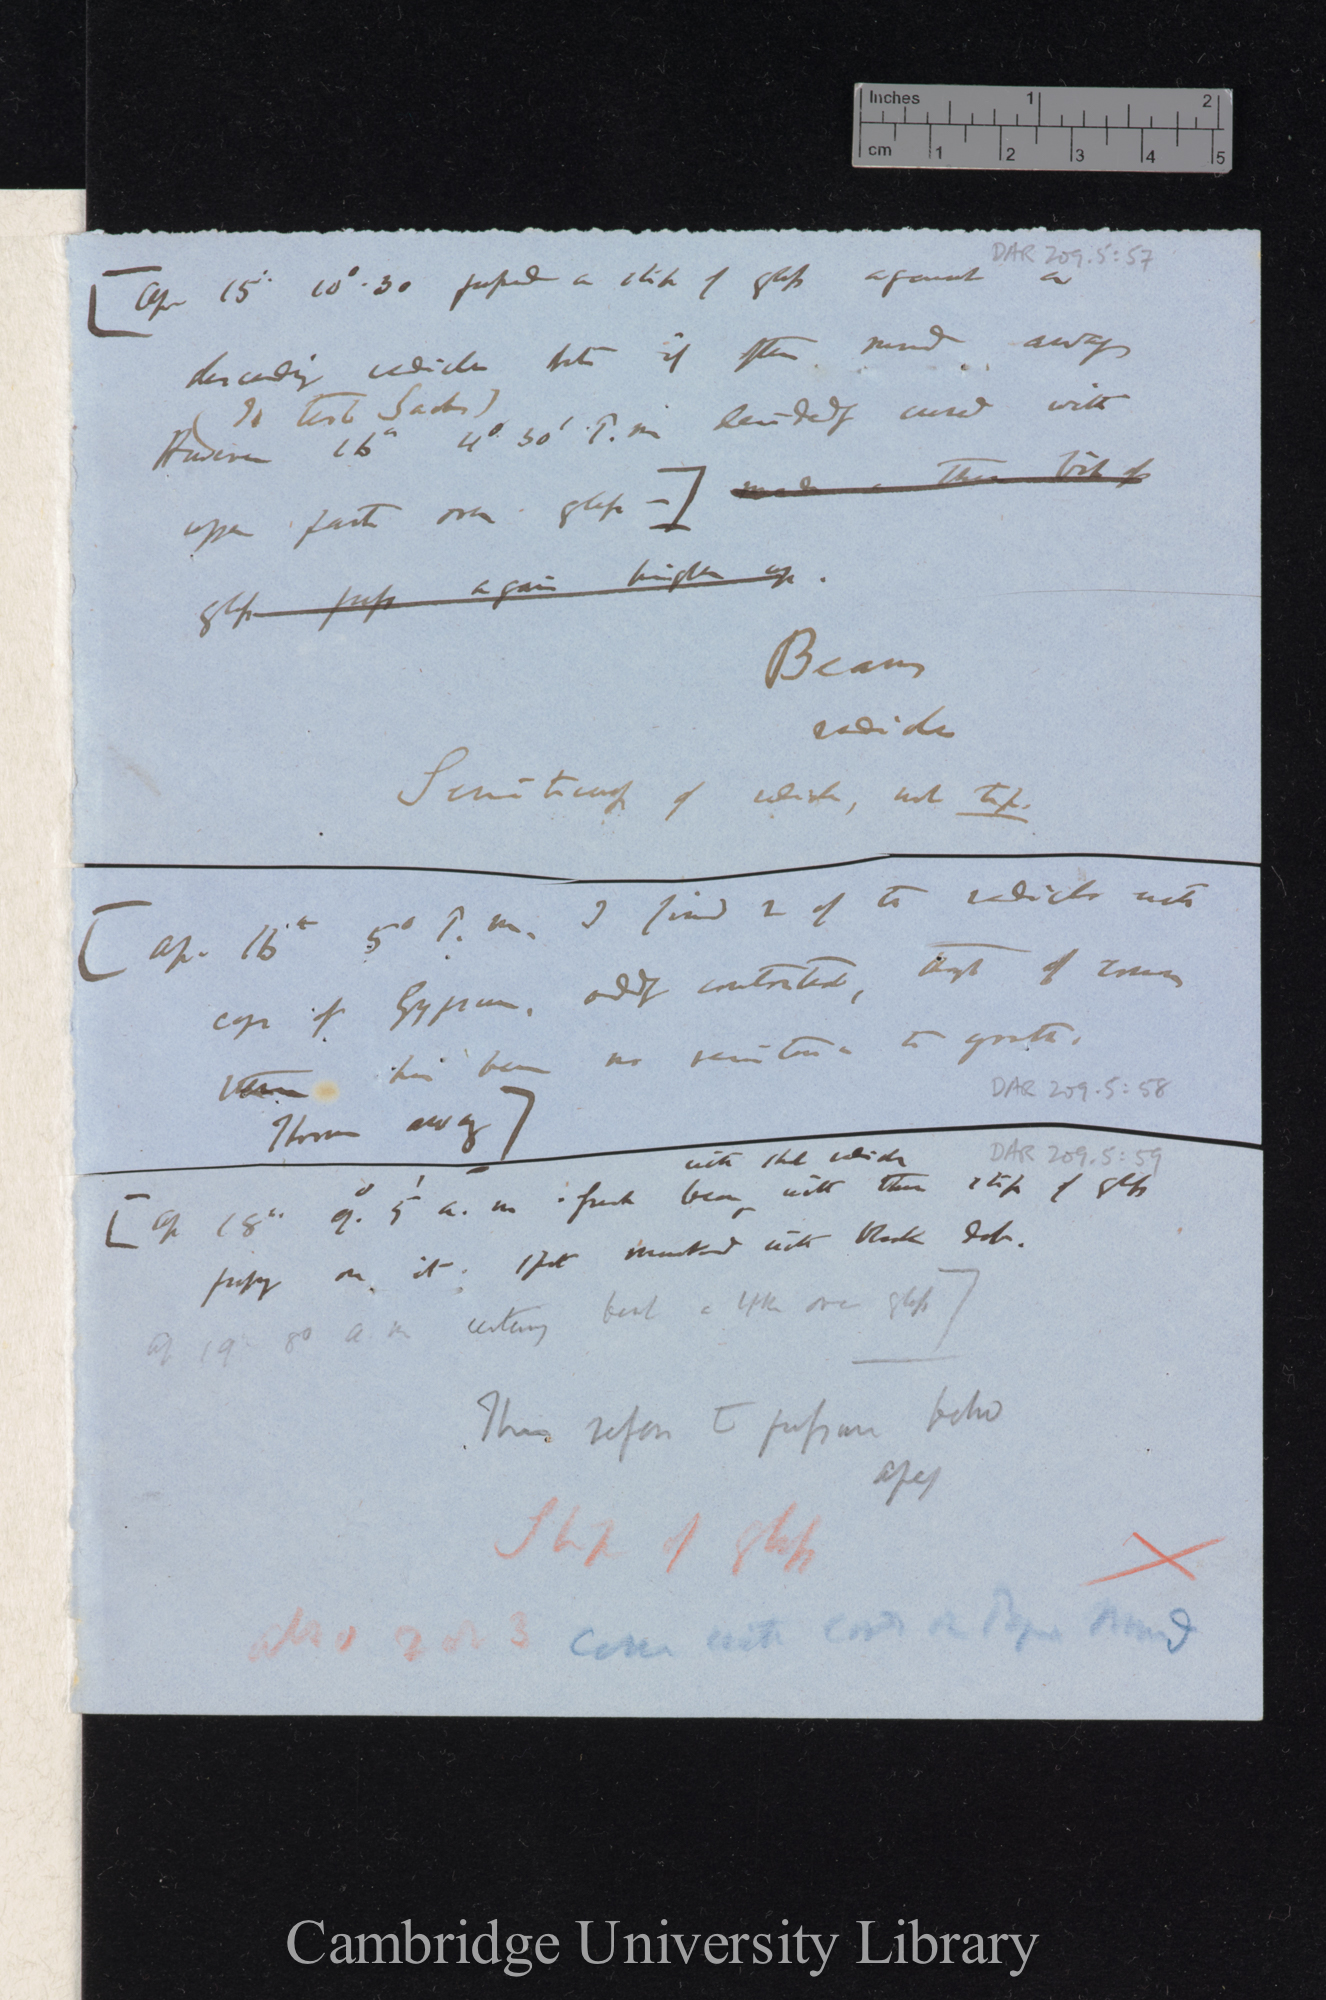 Inches 1 2
cm 1 2 3 4 5
DAR 209.5:57
[Ap. 15th 10°.30 pressed a slip of glass against a
descending radicle but it often moved away
(To test Sachs)
However 16th 4° 30' P.m. decidedly curved with
upper part over glass —] made a thin bit of
glass press again higher up.
Beans
radicles
Sensitiveness of radicle, not tip.
[Ap. 16th 5° P.m. I find 2 of the radicles with
caps of Gypsum, oddly contorted, tips of
has been no resistance to growth.
Thrown away]
DAR 209.5:58
DAR 209.5:59
with radicle
[Ap 18th 9° 5' a.m. fresh bean with thin slip of glass
pressing on it; spot marked with black dot.
Ap 19 8° a m certainly bent a little over glass]
This refers to pressure below
apex
Slip of glass
also 2 or 3 cases with card on
Cambridge University Library